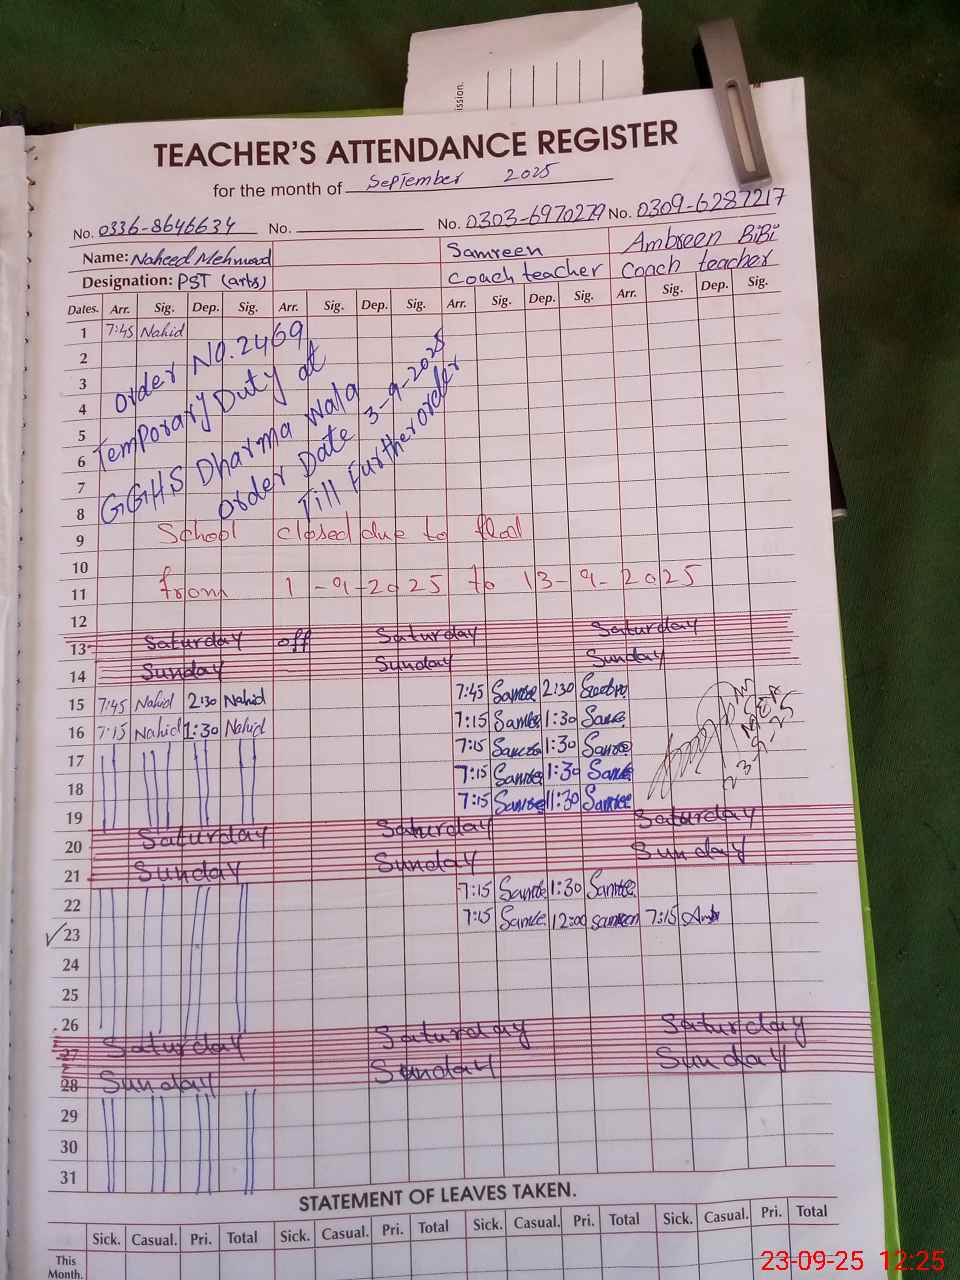 ission.
TEACHER'S ATTENDANCE REGISTER
for the month of September 2025
No. 0336-8646634 No. No. 0303-6970279 No. 0309-6287217
Name: Naheed Mehmood Samreen Ambreen BiBi
Designation: PST (arts) Coach teacher Coach teacher
Dates. Arr. Sig. Dep. Sig. Arr. Sig. Dep. Sig. Arr. Sig. Dep. Sig. Arr. Sig. Dep. Sig.
1 7:45 Nahid
2
3
4
5
6
7
8
order No. 2469
Temporary Duty at
GGHS Dharma Wala
order Date 3-9-2025
Till Further order
9 School closed due to flood
10
11 from 1-9-2025 to 13-9-2025
12
13 Saturday off Saturday Saturday
14 Sunday Sunday Sunday
15 7:45 Nahid 2:30 Nahid 7:45 Samree 2:30
16 7:15 Nahid 1:30 Nahid 7:15 Samree 1:30
17 7:15 Samree 1:30 Samree
18 7:15 Samree 1:30 Samree
19 7:15 Samree 1:30 Samree
23-9-25
20 Saturday Saturday Saturday
21 Sunday Sunday Sunday
22 7:15 Samree 1:30 Samree
23 7:15 Samree 12:00 samreen 7:15 Amb
24
25
26
27 Saturday Saturday Saturday
28 Sunday Sunday Sunday
29
30
31
STATEMENT OF LEAVES TAKEN.
Sick. Casual. Pri. Total Sick. Casual. Pri. Total Sick. Casual. Pri. Total Sick. Casual. Pri. Total
This
Month.
23-09-25 12:25